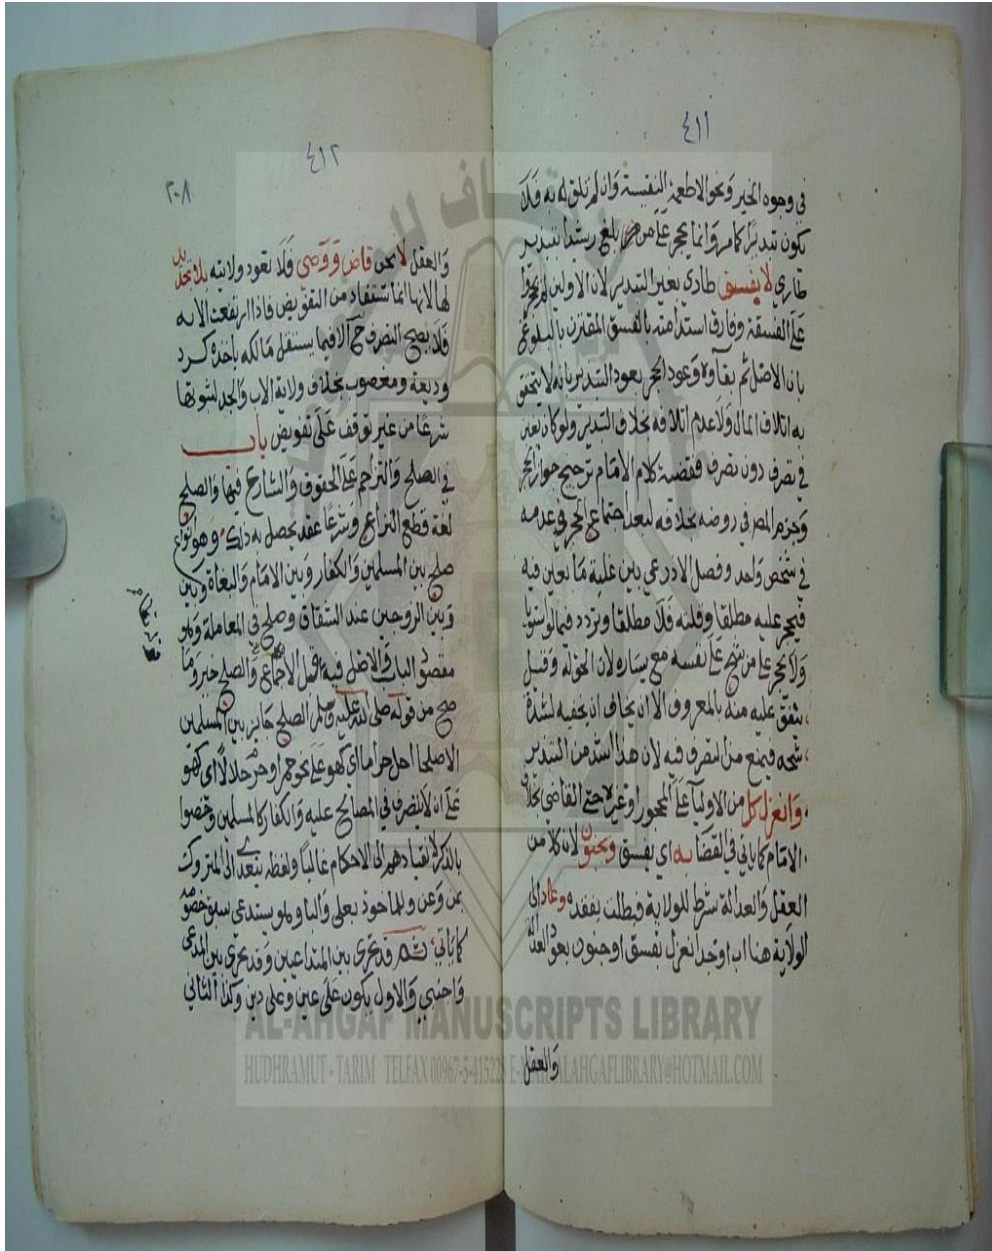 ٤١١
في وجوه الخير ونحو الاطعمة النفيسة وان لم تلق له به فلا
يكون تبذيرا كما مر وانما يحجر على من بلغ رشيدا بتبذير
طاري لا بفسق طاري بغير التبذير لان الاولين لم يحجروا
على الفسقة وفارق استدامته بالفسق المقترن بالبلوغ
بان الاصل ثم بقاؤه وعود الحجر بعود التبذير بانه لا يتحقق
به اتلاف المال ولا عدم اتلافه بخلاف التبذير ولو كان يغبن
في تصرف دون تصرف فقضية كلام الامام ترجيح جواز الحجر
وجزم المص في روضه بخلافه لبعد اجتماع الحجر وعدمه
في شخص واحد وفصل الاذرعي بين غلبة ما يغبن فيه
فيحجر عليه مطلقا وقلته فلا مطلقا وتردد فيما لو استويا
ولا يحجر على من شح على نفسه مع يساره لان الحق له وقيل
ينفق عليه منه بالمعروف الا ان يخاف ان يخفيه لشدة
شحه فيمنع من التصرف فيه لان هذا اشد من التبذير
وانعزل كل من الاوليآ على المحجور او غيره حتى القاضي بخلاف
الامام كما ياتي في القضا به اي بفسق وبجنون لان كلا من
العقل والعدالة شرط للولاية فبطلت بفقده وعاد الى
الولاية هنا اب او جد انعزل بفسق او جنون بعود العدالة
والعقل
٤١٢
٢٠٨
والعقل لا نحو قاض ووصي فلا تعود ولايته بلا تجديد
لها لانها انما تستفاد من التفويض فاذا ارتفعت الا به
فلا يصح التصرف ح الا فيما يستقل مالكه باخذه كرد
وديعة ومغصوب بخلاف ولاية الاب والجد لثبوتها
شرعا من غير توقف على تفويض باب
في الصلح والتزاحم على الحقوق والتنازع فيها والصلح
لغة قطع النزاع وشرعا عقد يحصل به ذلك وهو انواع
صلح بين المسلمين والكفار وبين الامام والبغاة وبين
وبين الزوجين عند الشقاق وصلح في المعاملة وهو
مقصود الباب والاصل فيه قبل الاجماع والصلح خير وما
صح من قوله صلى الله عليه وسلم الصلح جايز بين المسلمين
الا صلحا احل حراما اي كهو على نحو خمر او حرم حلالا اي كهو
على ان لا يتصرف في المصالح عليه والكفار كالمسلمين وخصوا
بالذكر لانقيادهم الى الاحكام غالبا ولفظه يتعدى الى المتروك
بمن وعن وللماخوذ بعلى والبا وهو يستدعي سبق خصومة
كما ياتي ثم قد يجري بين المتداعيين وقد يجري بين المدعي
واجنبي والاول يكون على عين وعلى دين وكذا الثاني
AL-AHGAF MANUSCRIPTS LIBRARY
HUDHRAMUT - TARIM TELFAX 00967-5-415221 E-MAIL ALAHGAFLIBRARY@HOTMAIL.COM